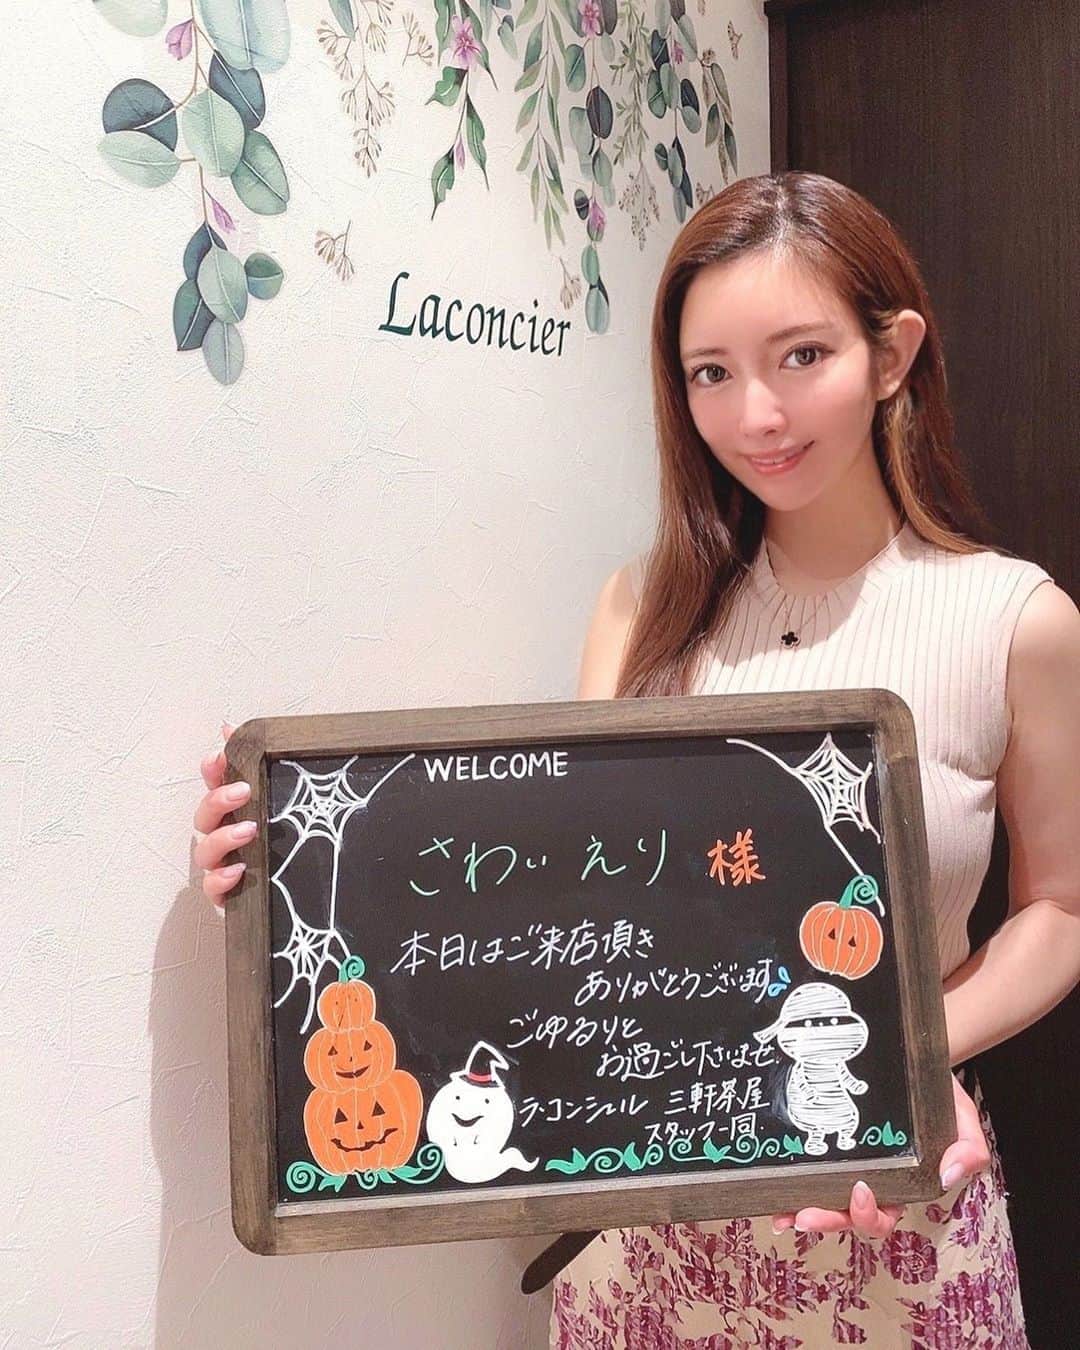 Laconcier
WELCOME
さわい えり 様
本日はご来店頂き
ありがとうございます
ごゆるりと
お過ごし下さいませ。
ラ・コンシェル 三軒茶屋
スタッフ一同.